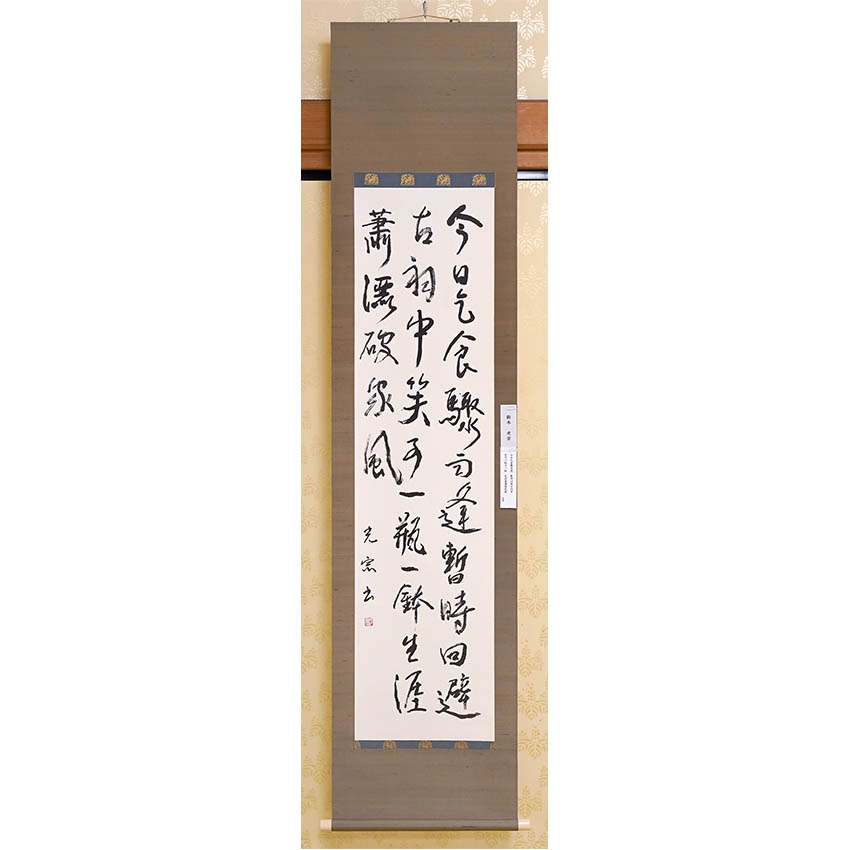 今日乞食驟雨逢暫時回避
古祠中笑予一瓶一鉢生涯
蕭灑破家風
光宗書
鈴木 光宗